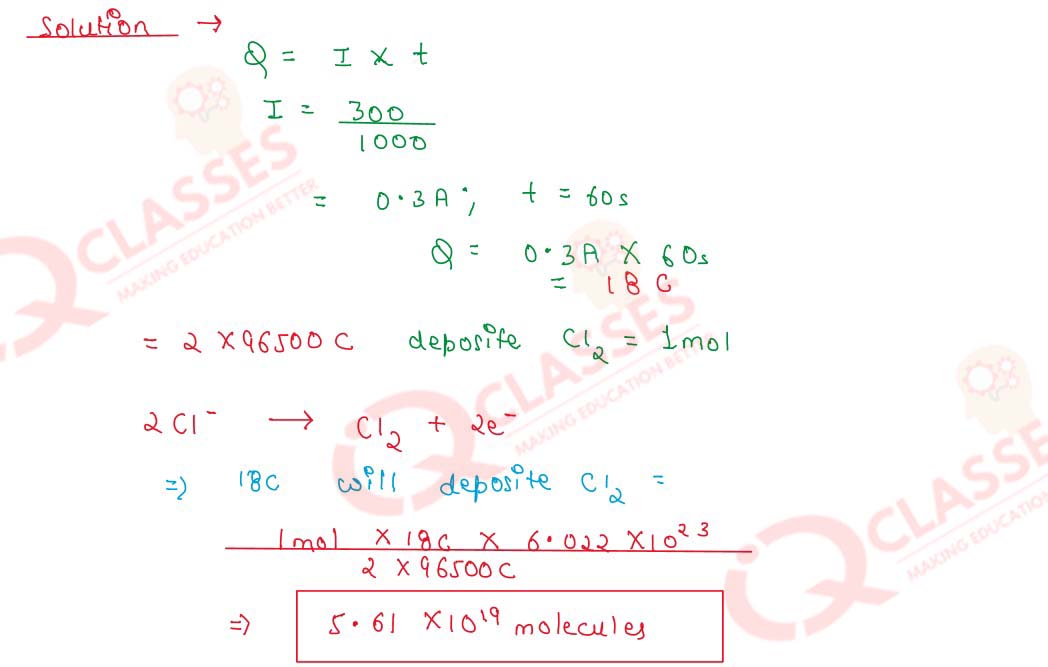 Solution →
Q = I × t
I = 300
1000
= 0.3A; t = 60s
Q = 0.3A × 60s
= 18 C
= 2 ×96500 C deposite Cl₂ = 1mol
2Cl⁻ → Cl₂ + 2e⁻
=> 18C will deposite Cl₂ =
1mol × 18C × 6.022 ×10²³
2 ×96500C
=> 5.61 ×10¹⁹ molecules
iQ CLASSES
MAKING EDUCATION BETTER
iQ CLASSES
MAKING EDUCATION BETTER
iQ CLASSES
MAKING EDUCATION